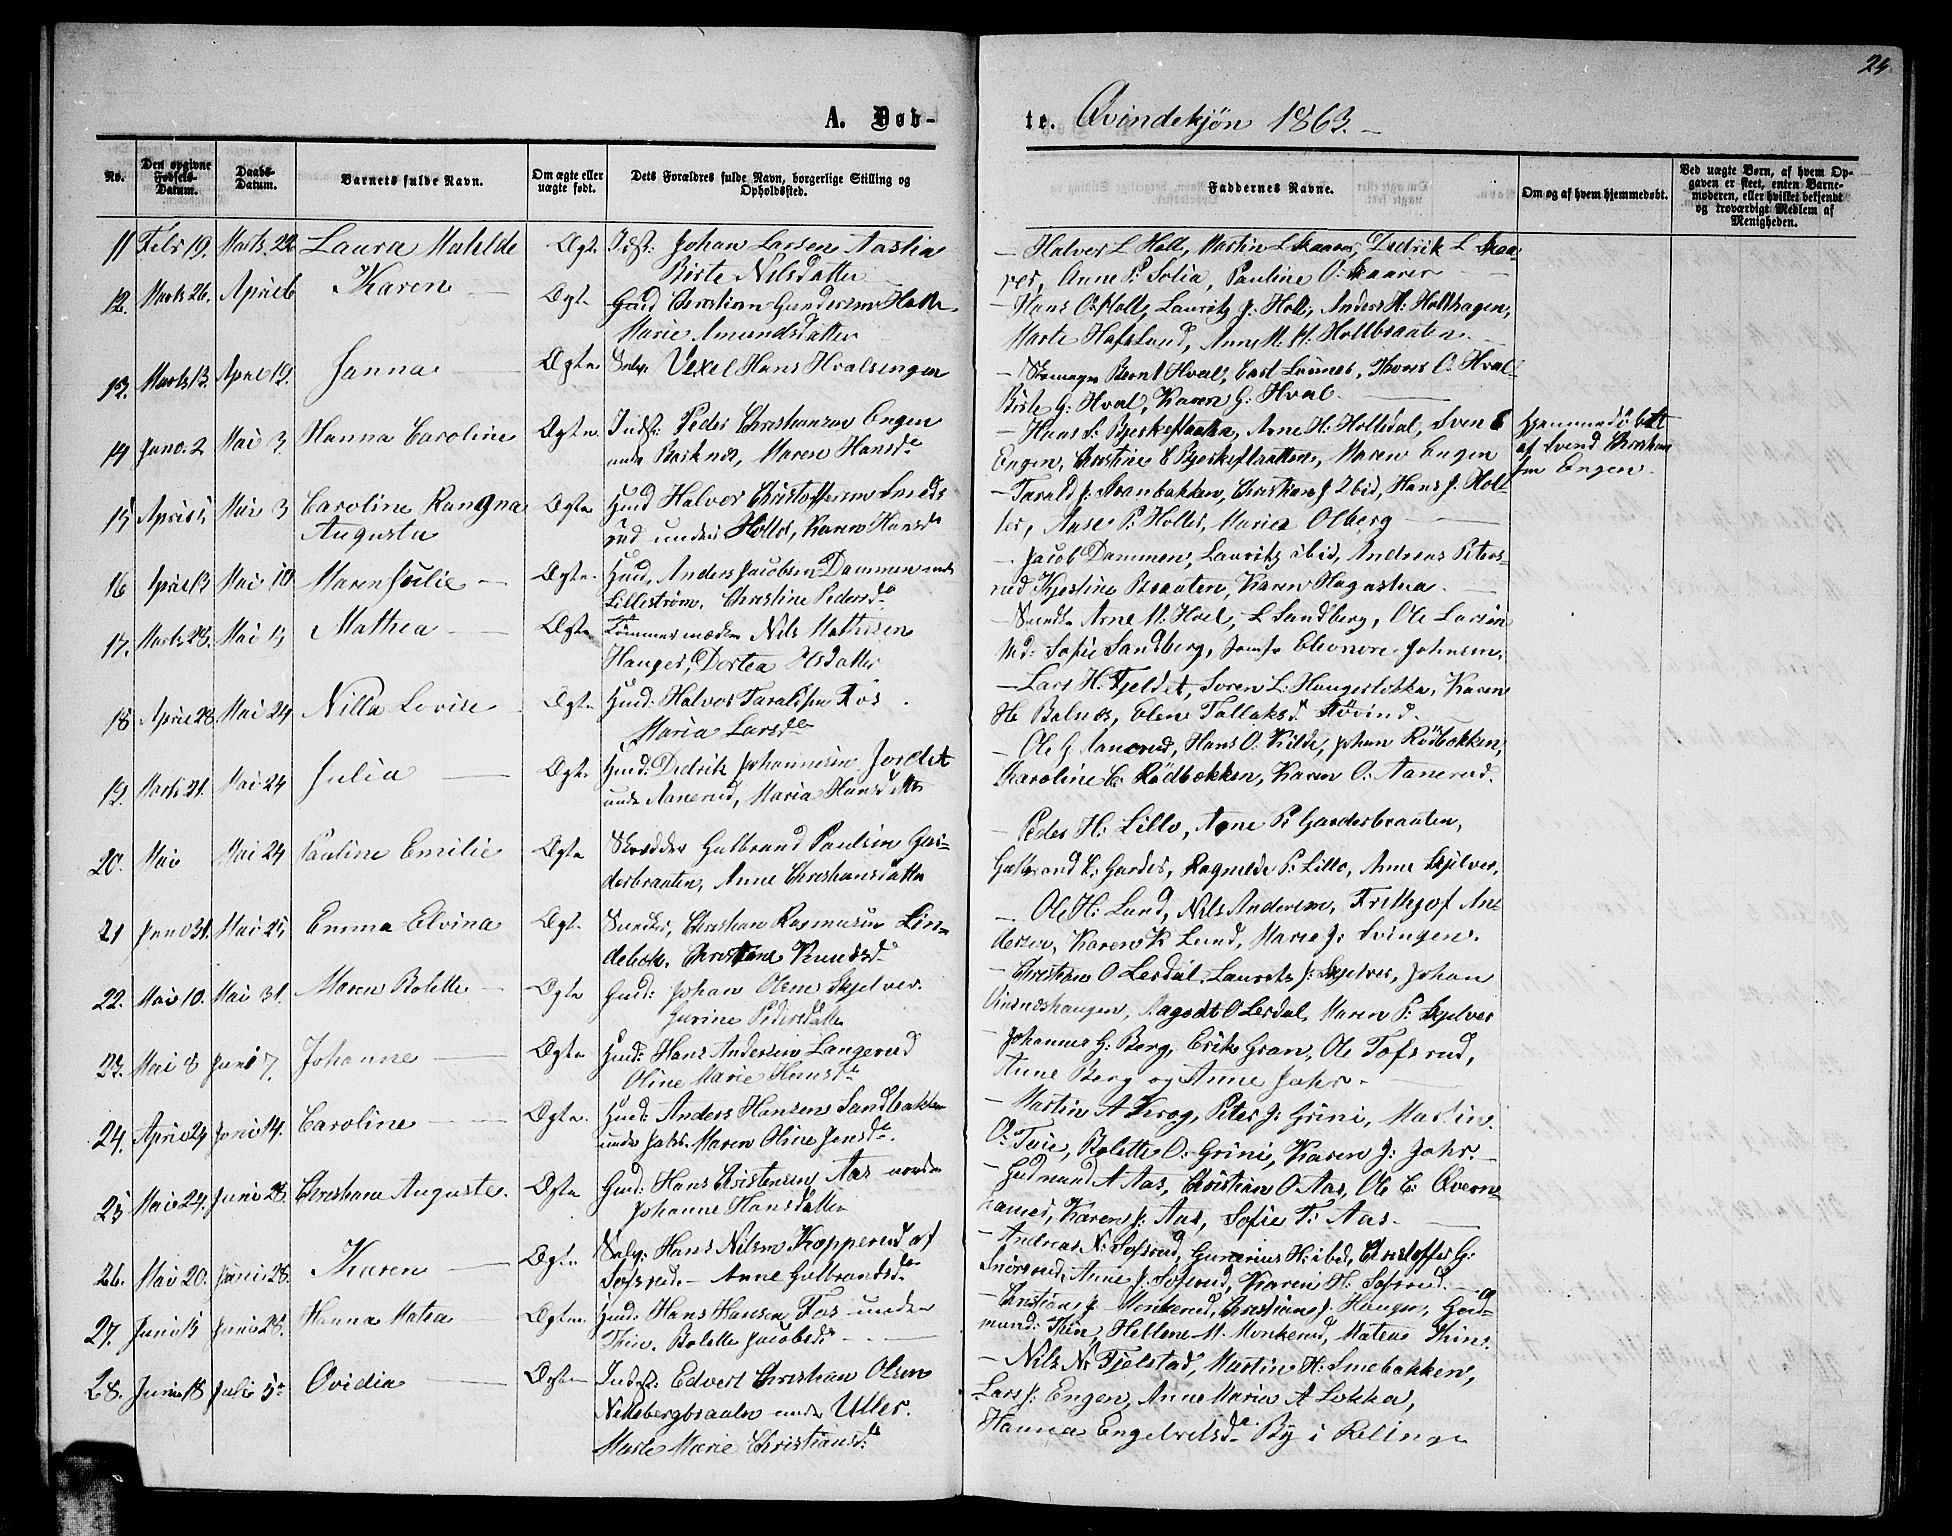 24
A. Døb-
te. Qvindekjøn 1863.
No.
Den opgivne Fødsels-Datum.
Daabs-Datum.
Barnets fulde Navn.
Om ægte eller uægte født.
Dets Forældres fulde Navn, borgerlige Stilling og Opholdssted.
Faddernes Navne.
Om og af hvem hjemmedøbt.
Ved uægte Børn, af hvem Op-
gaven er skeet, enten Barne-
moderen, eller hvilket bekjendt
og troværdigt Medlem af
Menigheden.
11 Febr 19. Marts 22 Laura Mathilde Ægte Indst: Johan Larsen Aastia
Birte Nilsdatter
— Halvor L Holl, Martin L Skaarer, Dedrik L Skaa
rer, Anne P: Solia, Pauline O: Skaarer
12. Marts 26. April 6 Karen Ægte Gmd Christian Gundersen Holte
Marie Amundsdatter
— Hans O: Holle, Lauritz J: Holl, Anders H: Hollhagen,
Marte Hafslund, Anne M. H: Hollbraaten
13. Marts 13. April 19. Janna Ægte Selv: Vexel Hans Hvalsengen
— Skomager Bernt Hval, Carl Linnes, Thorer O. Hval
Birte G: Hval, Karen G: Hval
14 Juno. 2 Mai 3. Hanna Caroline Ægte Indst: Peder Christiansen Engen
under Maren Hansdr
— Hans S: Bjerkeflaatten, Arne H: Holledal, Sven E
Engen, Christine E Bjerkeflaatten, Maren Engen
hjemmedöbt
af Svend Christian
sen Engen
15 April 1, Mai 3 Caroline Rangna
Augusta
Ægte Hmd Halvor Christoffersen Smeds
rud under Holler, Karen Hansdr
— Tarald J: Svanbakken, Christian J Ibid, Hans J: Hol-
ler, Aase P: Holler, Maria Olberg
16 April 13 Mai 10 Maren Julie Ægte Hmd, Anders Jacobsen Dammen under
Lillestrøm. Christine Pedersdr
— Jacob Dammen, Lauritz ibid, Andreas Peters-
rud Kjerstine Braaten, Karen Hagastua
17. Marts 28. Mai 15 Mathea Ægte Tømmermand Nils Mathesen
Hauger, Dortea
— Arne M. Hvel, L Sandberg, Ole Larsen
Md: Sofie Sandberg, Jomfr Eleonore Johnsen,
18 April 28 Mai 24 Nilla Lovise Ægte Hmd: Halvor Taraldsen Fos
Maria Larsdr
— Lars H. Fjeldet, Soren L: Haugerlökka, Karen
H: Balnes, Elene Tollaksd. Høvind.
19. Marts 21. Mai 24 Julia Ægte Hmd: Dedrik Johannesen Jordet
under Aanerud, Maria Hansdatter
— Ole G Aanerud, Hans O. Kilde, Johan Rödbakken,
Karoline C. Rödbakken, Karen O. Aanerud.
20. Mai Mai 24 Pauline Emilie Ægte Skrædder Gulbrand Paulsen Gar-
derbraaten, Anne Christiansdatter
— Peder H: Lillo, Arne P: Garderbraaten,
Gulbrand L: Garder, Ragnilde P: Lillo, Anne Skjelver.
21 Juno 31. Mai 25 Emma Elvina Ægte Christian Rasmusen Lin-
debok. Christiane Knudsdr
— Ole H: Lund, Nils Andersen, Frithjof An-
dersen, Karen K Lund, Marie J: Svingen.
22. Mai 10. Mai 31. Maren Bolette Ægte Gmd: Johan Olsen Skjelver.
Gurine Pedersdatter
— Christian O Lerdal, Laurets J: Skjelver, Johan
Aagodt O Lerdal, Maren P: Skjelver
23. Mai 8 Juni 7. Johanne Ægte Hmd: Hans Andersen Langerud
Oline Marie Hansdr
— Johannes G: Berg, Erik Gran, Ole Tofsrud,
Anne Berg og Anne Jahr.
24. April 24 Juni 14. Caroline Ægte Hmd: Anders Hansen Sandbakken
under Jahr. Maren Oline Jensdr.
— Martin A Krog, Peter J: Grini, Martin
O: Tuie, Bolette O: Grini, Karen J: Jahr.
25 Mai 24. Juni 28. Christiane Auguste. Ægte Gmd: Hans Christensen Aas nordre
Johanne Hansdatter
— Gudmund A Aas, Christian O Aas, Ole C: Qvern-
hamer, Karen J: Aas, Sofie T: Aas.
26. Mai 20. Juni 28. Karen Ægte Selv: Hans Nilsen Kopperud af
Sofsrud. — Anne Gulbrandsdr
— Andreas N: Sofsrud, Gunerius H: ibd, Christoffer G:
Snörsrud, Anne J: Sofsrud, Karen H: Sofsrud.
27. Juni 5 Juni 28. Hanna Matea Ægte Hmd: Hans Hansen Fos under
Thin. Bolette Jacobsdr
— Christian J Monkerud, Christian J: Hauger, Gud-
mund: Kin, Hellene M. Monkerud, Matea Thin.
28. Juni 18 Juli 5te Ovidia Ægte Indst: Edvert Christian Olsen
Nittebergbraaten under Uller.
Marte Marie Christiansdr
— Nils N: Fjelstad, Martin H: Smebakken,
Lars J: Engen, Anne Maria A Løkka,
Hanna Engebretsdr By i Relinge